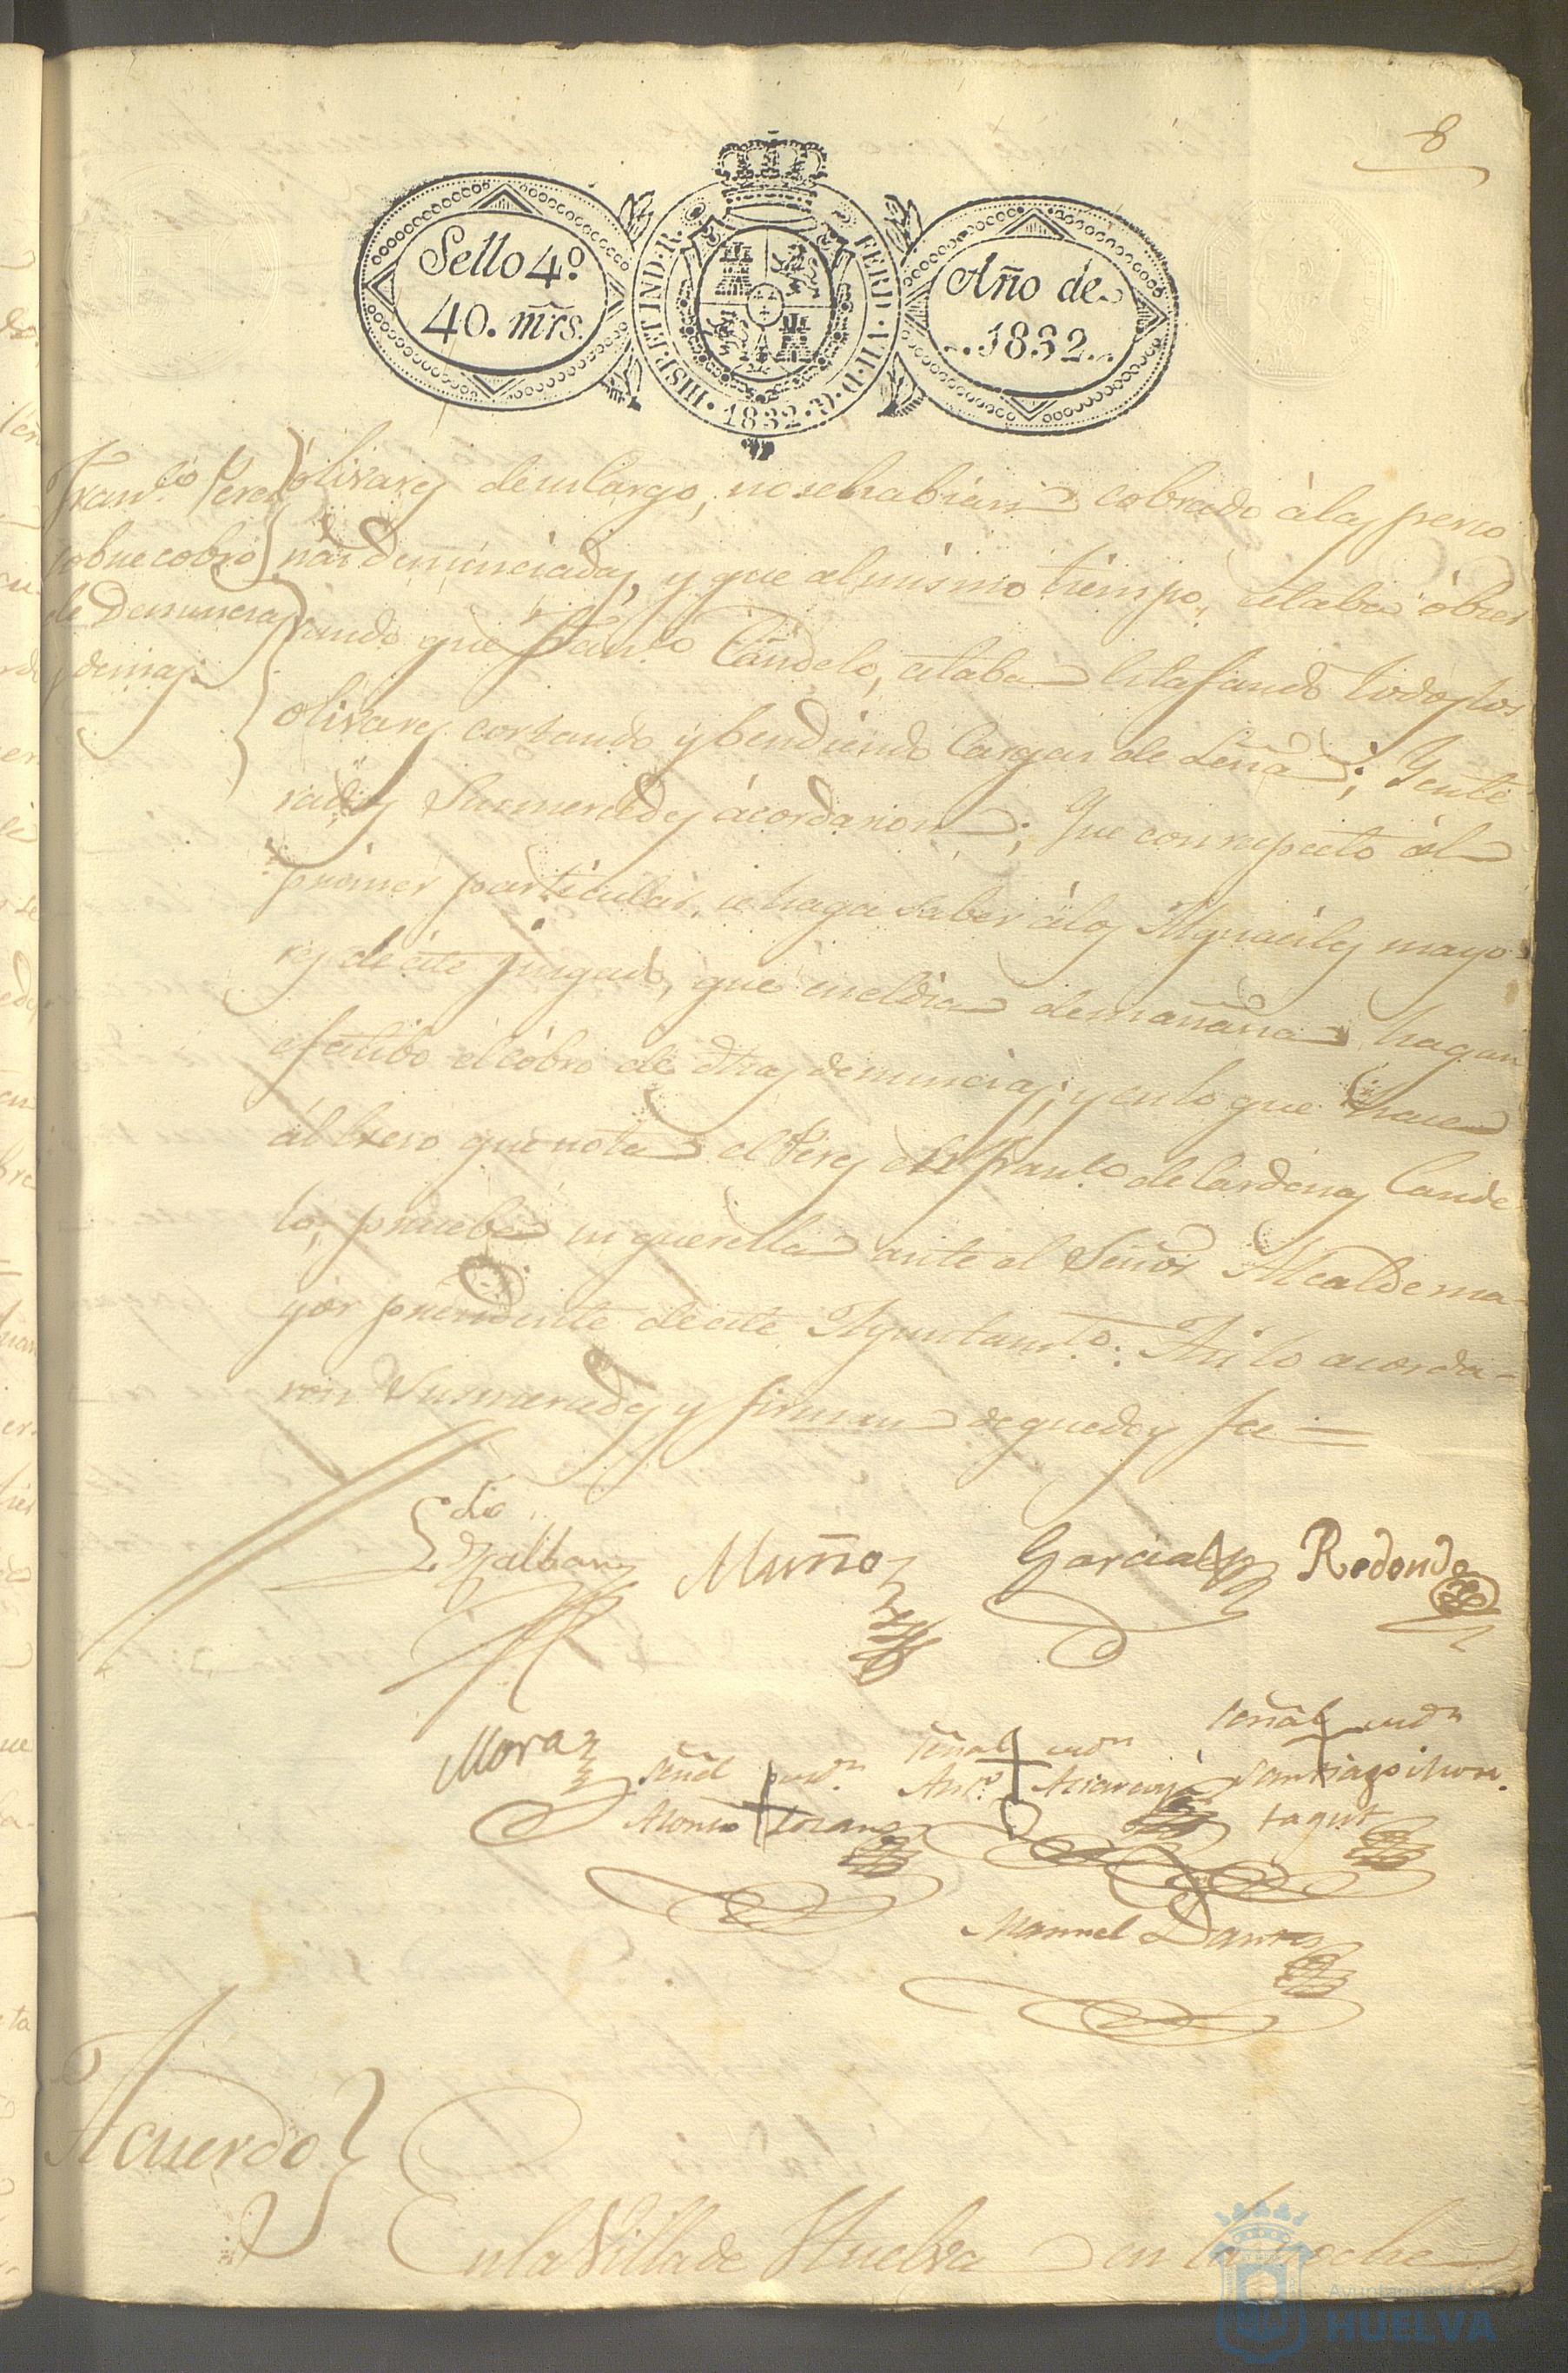 8
Sello 4º
40. mr̃s.
HISP. ET IND. R.
FERD. VII. D. G.
1832
Año de
1832
Franco Perez
sobre cobro
de Denuncias
y demas
olivares de su cargo, no se habian cobrado á las perso
nas denunciadas, y que al mismo tiempo, estaba óbser
vando que Franco Candelo, estaba estafando todos los
olivares cortando y bendiendo Cargas de Leña; Y ente
rados Sus mercedes ácordaron; Que con respecto ál
primer particular, se haga saber á los Alguaciles mayo
res de éste juzgado, que en el dia de mañana hagan
efectibo el cobro de dhas denuncias; y en lo que hace
ál que nota el Perez de Franco de Cardenas Cande
lo, pruebe su querella ante el Señor Alcalde ma-
yor precidente de este Ayuntamto.. Asi lo acorda-
ron Sus mercedes y firman de que doy fee =
Ldo
Muñoz Garcia Redondo
Mora señal de señal señal
Alonso Lozano Anto Santiago
Manuel
Acuerdo
En la Villa de Huelva en la noche
Ayuntamiento de
HUELVA